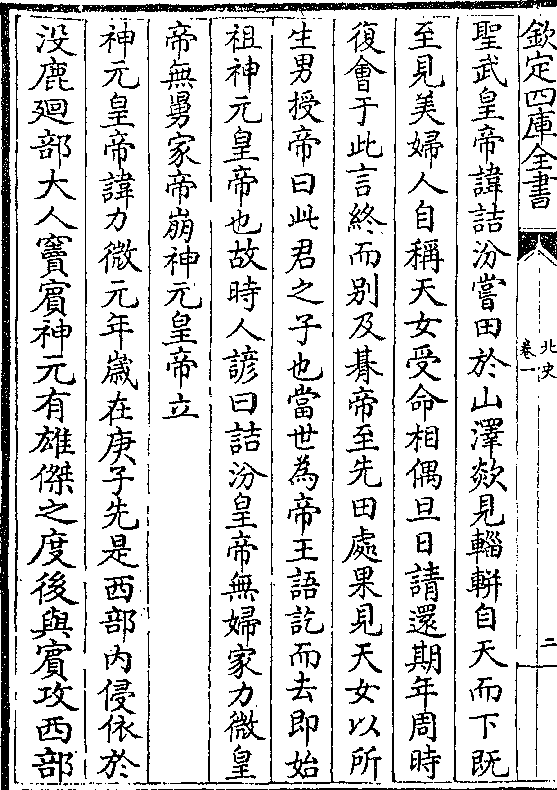 欽定四庫全書
北史
卷一
二
聖武皇帝諱詰汾嘗田於山澤欻見輜軿自天而下既
至見美婦人自稱天女受命相偶旦日請還期年周時
復會于此言終而别及朞帝至先田處果見天女以所
生男授帝曰此君之子也當世為帝王語訖而去即始
祖神元皇帝也故時人諺曰詰汾皇帝無婦家力微皇
帝無舅家帝崩神元皇帝立
神元皇帝諱力微元年歲在庚子先是西部内侵依於
没鹿廻部大人竇賓神元有雄傑之度後與賓攻西部